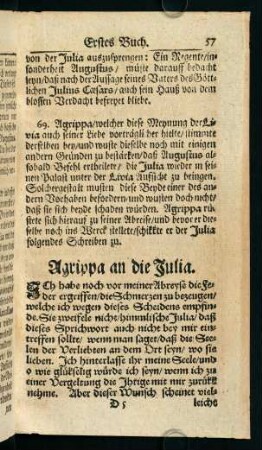 Erstes Buch. 57
von der Julia auszusprengen: Ein Regent/in-
sonderheit Augustus/ müste darauff bedacht
seyn/daß nach der Aussage seines Vaters des Gött-
lichen Julius Cæsars/auch sein Hauß von dem
blossen Verdacht befreyet bliebe.
69. Agrippa/welcher diese Meynung der Li-
via auch seiner Liebe vorträgli der hielte/stimmte
derselben bey/und wuste dieselbe noch mit einigen
andern Gründen zu bestärcken/daß Augustus al-
sobald Befehl ertheilete/ die Julia wieder in sei-
nen Palast unter der Livia Aufsicht zu bringen.
Solchergestalt musten diese Beyde einer des an-
dern Vorhaben befordern/und wusten doch nicht/
daß sie sich beyde schaden würden. Agrippa rü-
stete sich hierauf zu seiner Abreise/und bevor er die-
selbe noch ins Werck stellete/schikkte er der Julia
folgendes Schreiben zu.
Agrippa an die Julia.
Ich habe noch vor meiner Abreyse die Fe-
der ergriffen/die Schmertzen zu bezeugen/
welche ich wegen dieses Scheidens empfin-
de. Sie zweifele nicht himmlische Julia/ daß
dieses Sprichwort auch nicht bey mir ein-
treffen sollte/ wenn man saget/daß die See-
len der Verliebten an dem Ort seyn/ wo sie
lieben. Ich hinterlasse ihr meine Seele/und
o wie glükselig würde ich seyn/wenn ich zu
einer Vergeltung die Ihrige mit mir zurükk
nehme. Aber dieser Wunsch scheinet viel-
D 5 leicht